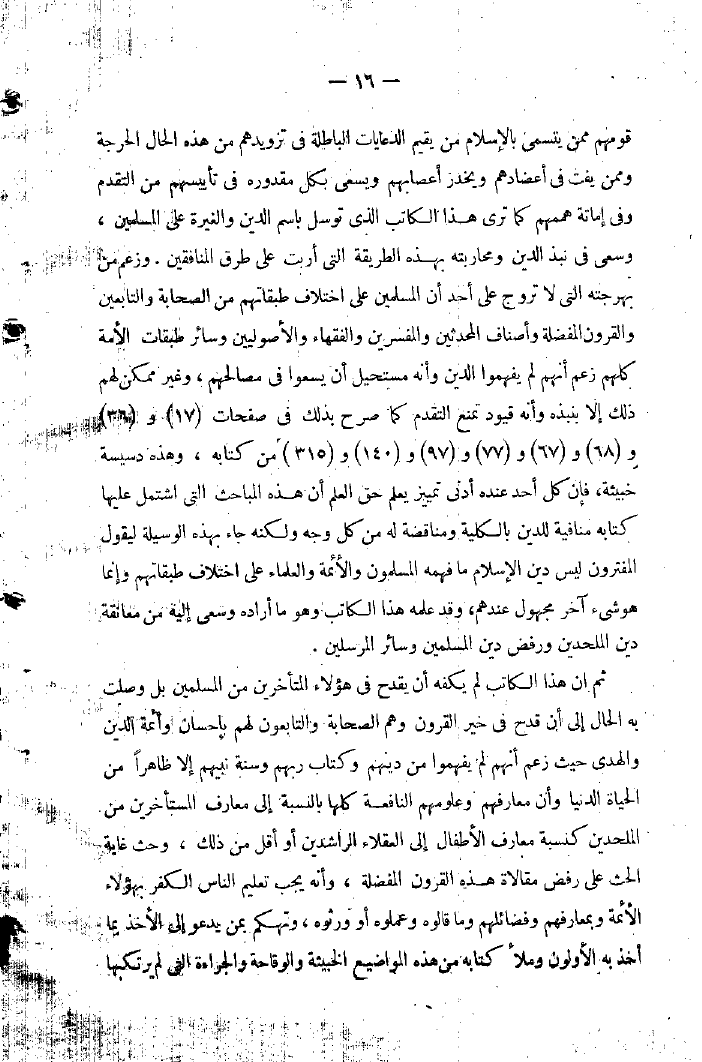 — ١٦ —
قومهم ممن يتسمى بالإسلام من يقيم الدعايات الباطلة فى تزويدهم من هذه الحال الحرجة
وممن يفت فى أعضادهم ويخدر أعصابهم ويسعى بكل مقدوره فى تأييسهم من التقدم
وفى إماتة هممهم كما ترى هذا الكاتب الذى توسل باسم الدين والغيرة على المسلمين ،
وسعى فى نبذ الدين ومحاربته بهذه الطريقة التى أربت على طرق المنافقين . وزعم من
بهرجته التى لا تروج على أحد أن المسلمين على اختلاف طبقاتهم من الصحابة والتابعين
والقرون المفضلة وأصناف المحدثين والمفسرين والفقهاء والأصوليين وسائر طبقات الأمة
كلهم زعم أنهم لم يفهموا الدين وأنه مستحيل أن يسعوا فى مصالحهم ، وغير ممكن لهم
ذلك إلا بنبذه وأنه قيود تمنع التقدم كما صرح بذلك فى صفحات (١٧) و (٣٦)
و (٦٨) و (٦٧) و (٧٧) و (٩٧) و (١٤٠) و (٣١٥) من كتابه ، وهذه دسيسة
خبيئة، فإن كل أحد عنده أدنى تمييز يعلم حق العلم أن هذه المباحث التى اشتمل عليها
كتابه منافية للدين بالكلية ومناقضة له من كل وجه ولكنه جاء بهذه الوسيلة ليقول
المفترون ليس دين الإسلام ما فهمه المسلمون والأئمة والعلماء على اختلاف طبقاتهم وإنما
هو شىء آخر مجهول عندهم، وقد علمه هذا الكاتب وهو ما أراده وسعى إلية من معانقة
دين الملحدين ورفض دين المسلمين وسائر المرسلين .
ثم ان هذا الكاتب لم يكفه أن يقدح فى هؤلاء المتأخرين من المسلمين بل وصلت
به الحال إلى أن قدح فى خير القرون وهم الصحابة والتابعون لهم بإحسان وأئمة الدين
والهدى حيث زعم أنهم لم يفهموا من دينهم وكتاب ربهم وسنة نبيهم إلا ظاهراً من
الحياة الدنيا وأن معارفهم وعلومهم النافعة كلها بالنسبة إلى معارف المستأخرين من
الملحدين كنسبة معارف الأطفال إلى العقلاء الراشدين أو أقل من ذلك ، وحث غاية
الحث على رفض مقالاة هذه القرون المفضلة ، وأنه يجب تعليم الناس الكفر بهؤلاء
الأئمة وبمعارفهم وفضائلهم وما قالوه وعملوه أو ورثوه ، وتهكم بمن يدعو إلى الأخذ بما
أخذ به الأولون وملأ كتابه من هذه المواضيع الخبيثة والوقاحة والجراءة التى لم يرتكبها